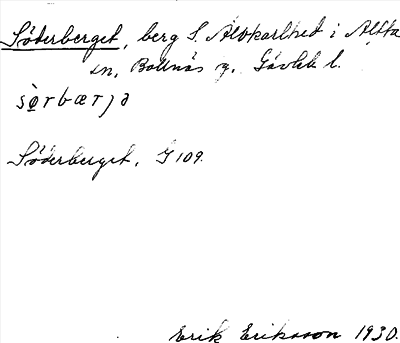 Söderberget, berg S. Älvkarlhed i Alfta
sn, Bollnäs tg. Gävleb. l.
sø̀rbærjə
Söderberget, G 109.
Erik Eriksson 1930.